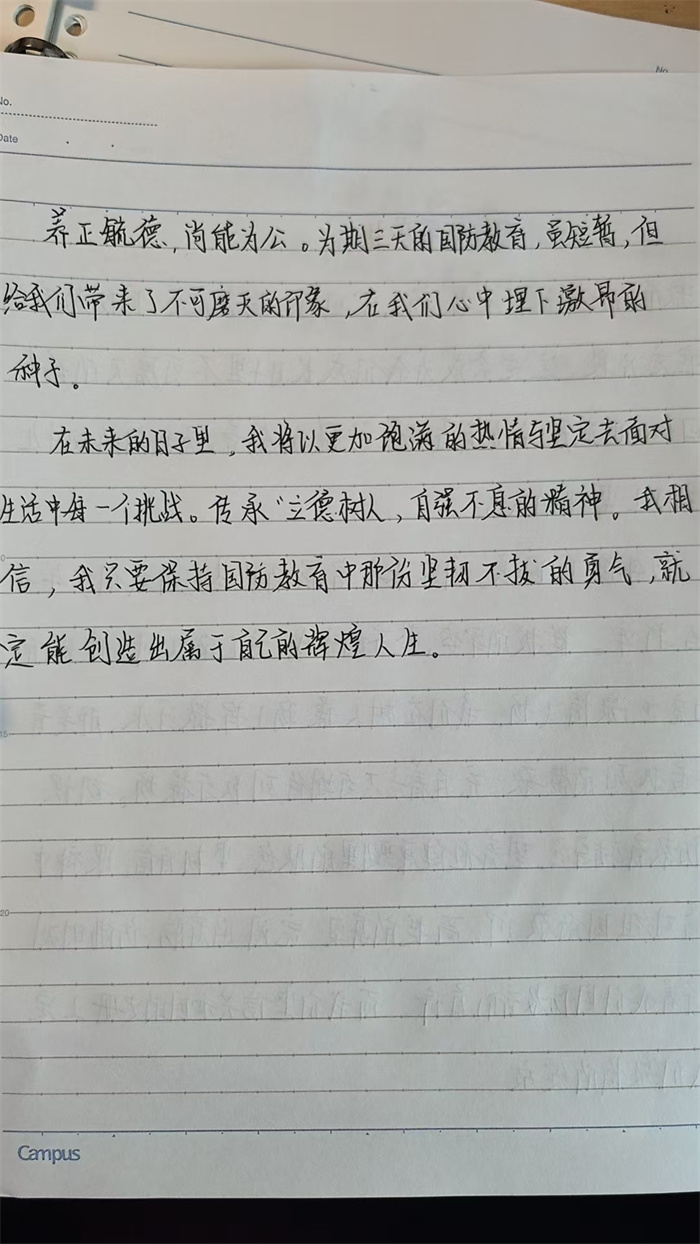 No.
No.
Date
养正毓德，尚能为公。为期三天的国防教育，虽短暂，但
给我们带来了不可磨灭的印象，在我们心中埋下激昂的
种子。
在未来的日子里，我将以更加饱满的热情与坚定去面对
生活中每一个挑战。传承“立德树人，自强不息的精神。我相
信，我只要保持国防教育中那份坚韧不拔的勇气，就
定能创造出属于自己的辉煌人生。
15
20
Campus